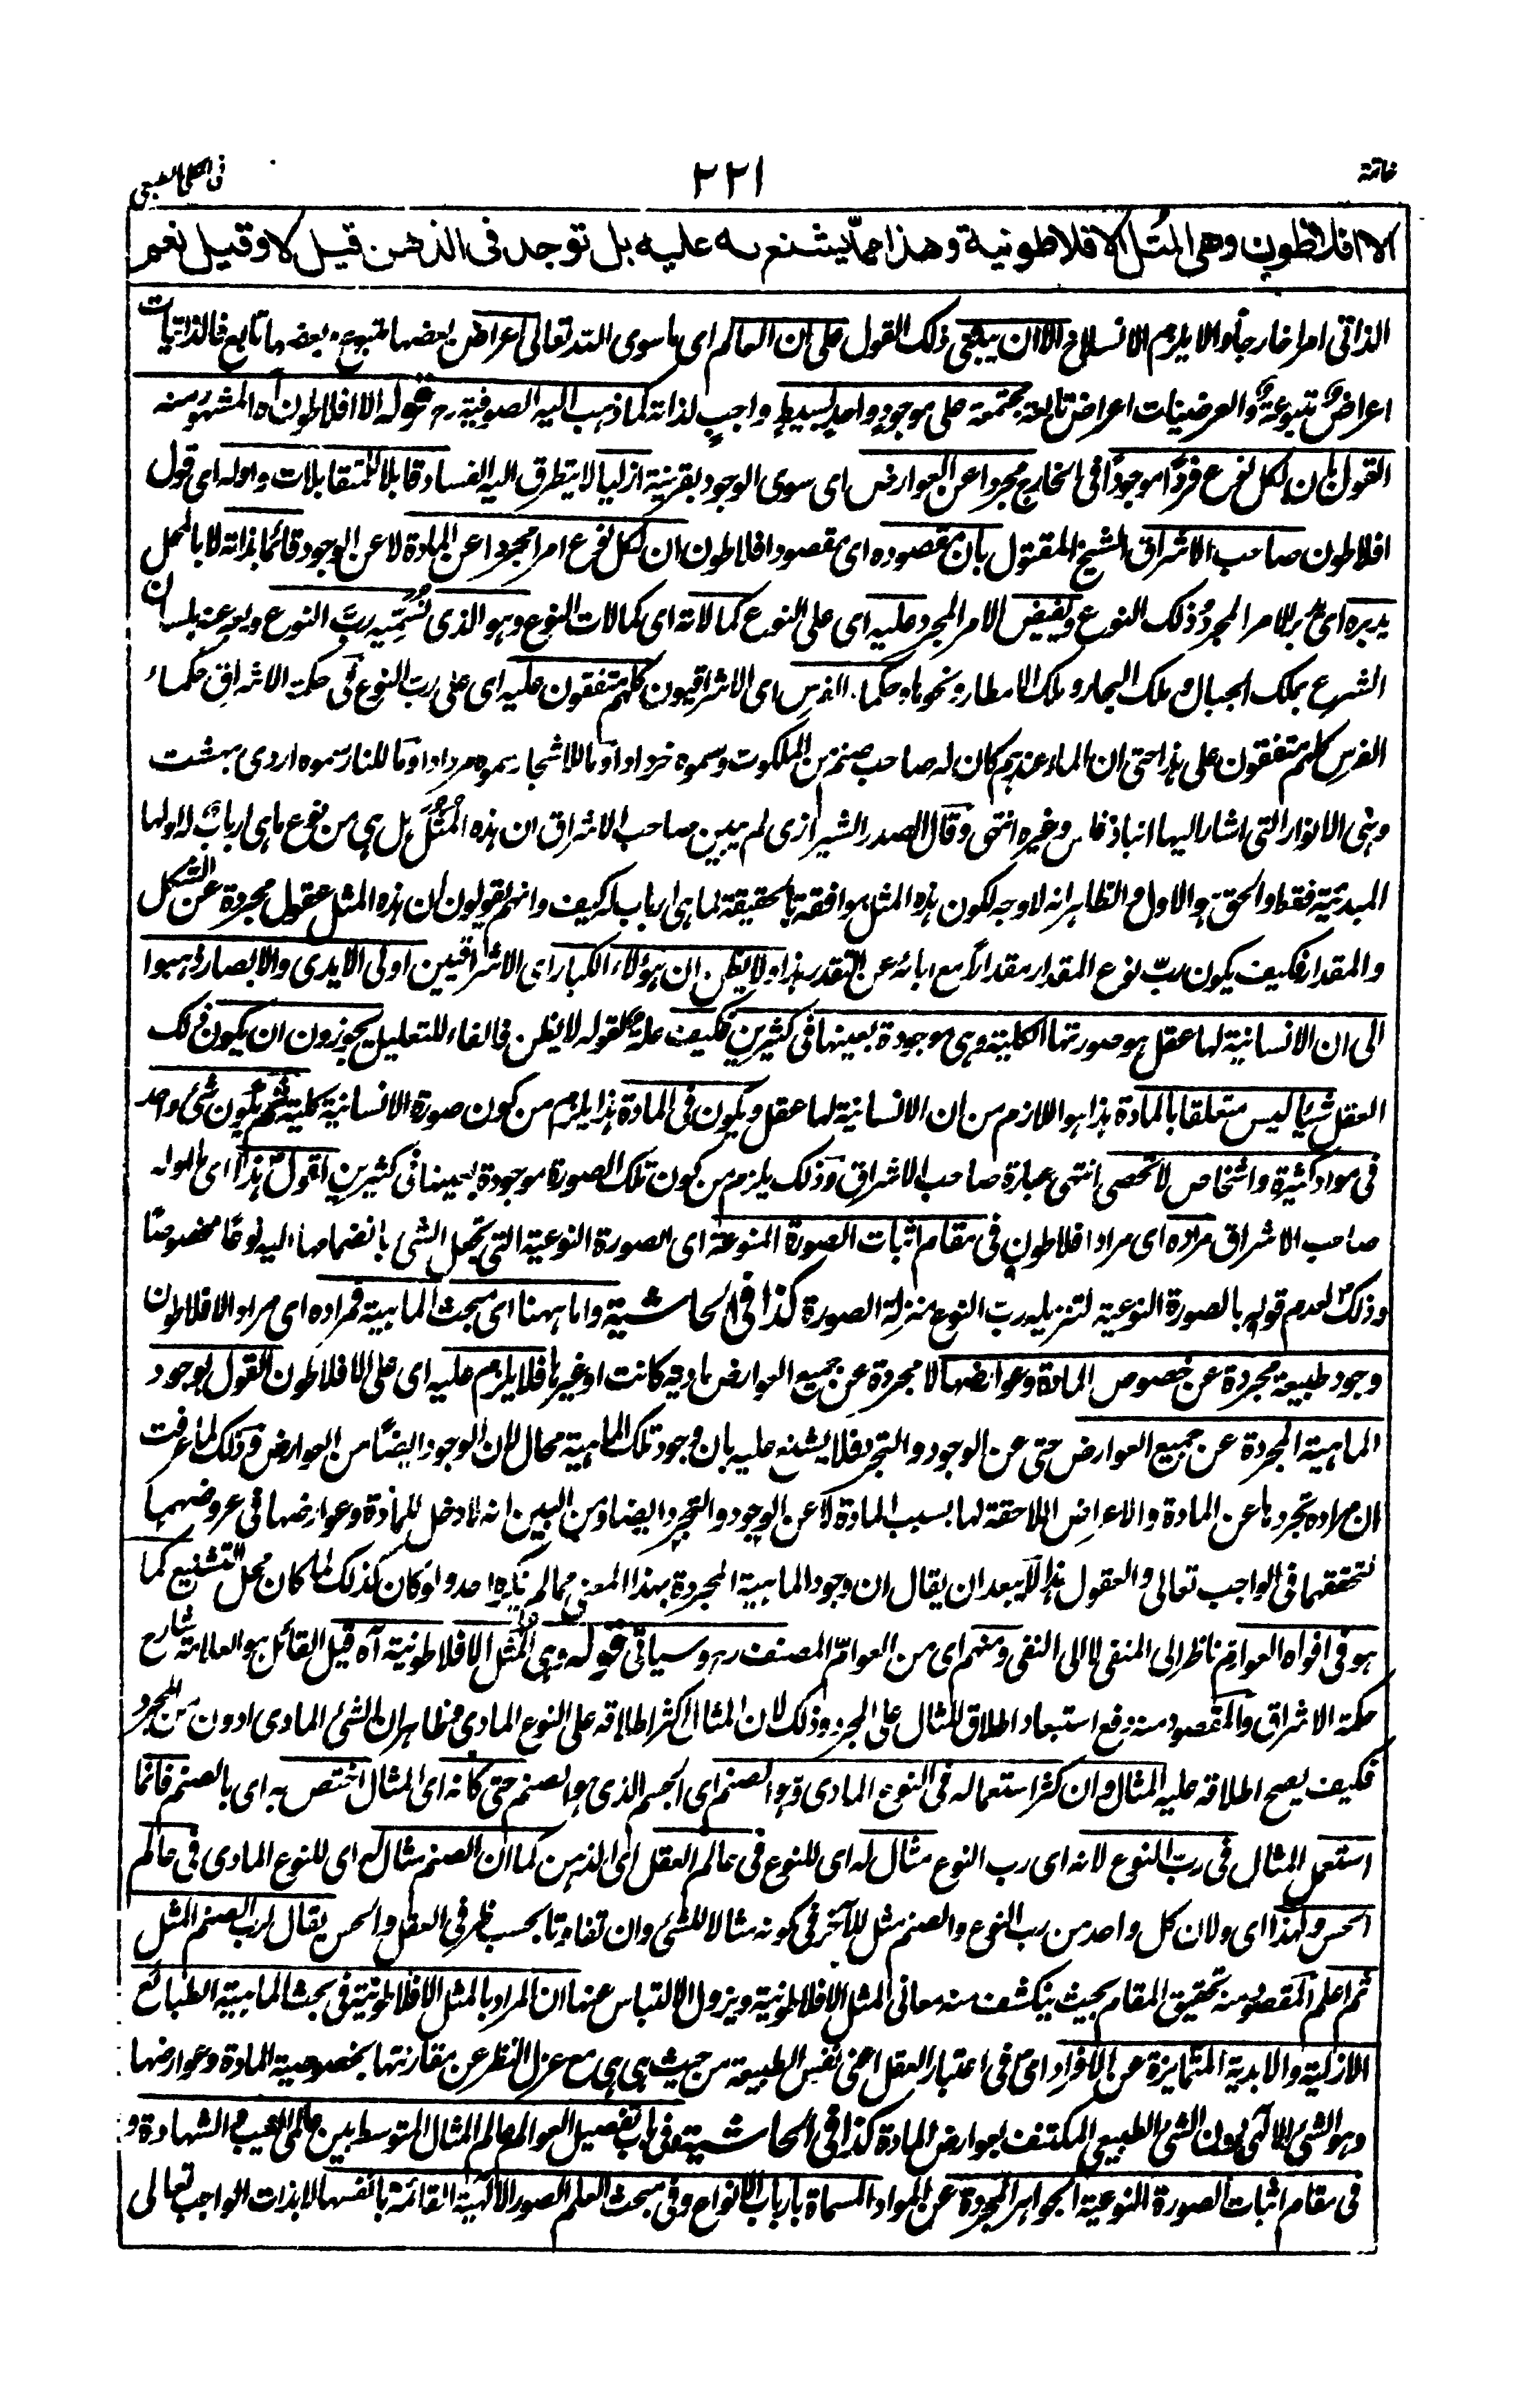 خاتمة
٢٢١
فى الكلى الطبيعى
الا افلاطون وهى المُثُل الافلاطونية وهذا مما يشنع به عليه بل توجد فى الذهن قيل لا وقيل نعم
الذاتى امرا خارجا والا يلزم الانسلاخ الا ان يبتنى ذلك القول على ان العالم اى ما سوى الله تعالى اعراض بعضها متبوع وبعضها تابع فالذاتيات
اعراض متبوعة والعرضيات اعراض تابعة مجتمعة على موجود واحد بسيط واجب لذاته كما ذهب اليه الصوفية رح قوله الا افلاطون اه المشهور منه
القول بان لكل نوع فردا موجودا فى الخارج مجردا عن العوارض اى سوى الوجود بقرينة ازليا لا يتطرق اليه الفساد قابلا للمتقابلات واوله اى قول
افلاطون صاحب الاشراق الشيخ المقتول بان مقصوده اى مقصود افلاطون ان لكل نوع امرا مجردا عن المادة لا عن الوجود قائما بذاته لا بالمحل
يدبره اى يدبر الامر المجرد ذلك النوع ويفيض الامر المجرد عليه اى على النوع كمالاته اى كمالات النوع وهو الذى نُسَمِّيه ربَّ النوع ويعبر عنه بلسان
الشرع بملك الجبال وملك البحار وملك الامطار ونحوها وحكماء الفرس اى الاشراقيون كلهم متفقون عليه اى على رب النوع فى حكمة الاشراق حكماء
الفرس كلهم متفقون على هذا حتى ان الماء عندهم كان له صاحب صنم من الملكوت وسموه خرداد وما للاشجار سموه مرداد وما للنار سموه اردى بهشت
وهى الانوار التى اشار اليها انباذقلس وغيره انتهى وقال الصدر الشيرازى لم يبين صاحب الاشراق ان هذه المُثُل هل هى من نوع ما هى ارباب له او لها
المبدئية فقط والحق هو الاول والظاهر انه لا وجه لكون هذه المثل موافقة بالحقيقة لما هى ارباب له كيف وانهم يقولون ان هذه المثل عقول مجردة عن الشكل
والمقدار فكيف يكون ربّ نوع المقدار مقداراً مع ابائه عن التقدر هذا ولا يظن ان هؤلاء الكبار اى الاشراقيين اولى الايدى والابصار ذهبوا
الى ان الانسانية لها عقل هو صورتها الكلية وهى موجودة بعينها فى كثيرين فكيف علة لقوله لا يظن فالفاء للتعليل يجوزون ان يكون ذلك
العقل شيئا ليس متعلقا بالمادة هذا هو اللازم من ان الانسانية لها عقل ويكون فى المادة هذا يلزم من كون صورة الانسانية كلية ثم يكون شئ واحد
فى مواد كثيرة واشخاص لا تحصى انتهى عبارة صاحب الاشراق وذلك يلزم من كون تلك الصورة موجودة بعينها فى كثيرين اقول هذا اى ما اوله
صاحب الاشراق مراده اى مراد افلاطون فى مقام اثبات الصورة المنوعة اى الصورة النوعية التى تجعل الشئ بانضمامها اليه نوعا مخصوصا
وذلك لعدم قوله بالصورة النوعية لتنزيله رب النوع منزلة الصورة كذا فى الحاشية واما ههنا اى مبحث الماهية فمراده اى مراد الافلاطون
وجود طبيعة مجردة عن خصوص المادة وعوارضها لا مجردة عن جميع العوارض مادية كانت او غيرها فلا يلزم عليه اى على الافلاطون القول بوجود
الماهية المجردة عن جميع العوارض حتى عن الوجود والتجرد فلا يشنع عليه بان وجود تلك الماهية محال لان الوجود ايضا من العوارض وذلك لما عرفت
ان مراده تجردها عن المادة والاعراض اللاحقة لها بسبب المادة لا عن الوجود والتجرد ايضا ومن البين انه لا دخل للمادة وعوارضها فى عروضهما
لتحققهما فى الواجب تعالى والعقول هذا لا يبعد ان يقال ان وجود الماهية المجردة بهذا المعنى مما لم ينكره احد ولو كان كذلك لما كان محل التشنيع كما
هو فى افواه العوام ناظر الى المنفى لا الى النفى ومنهم اى من العوامّ المصنف ره وسياتى قوله وهى المُثُل الافلاطونية آه قيل القائل هو العلامة شارح
حكمة الاشراق والمقصود منه دفع استبعاد اطلاق المثال على المجرد وذلك لان المثال اكثر اطلاقه على النوع المادى وظاهر ان الشئ المادى ادون من المجرد
فكيف يصح اطلاقه عليه المثال وان كثر استعماله فى النوع المادى وهو الصنم اى الجسم الذى هو الصنم حتى كانه اى المثال اختص به اى بالصنم فانما
استعمل المثال فى رب النوع لانه اى رب النوع مثال له اى للنوع فى عالم العقل اى الذهن كما ان الصنم مثال له اى للنوع المادى فى عالم
الحس ولهذا اى ولان كل واحد من رب النوع والصنم مثل للآخر فى كونه مثالا للشئ وان تفاوتا بحسب ظرفى العقل والحس يقال لرب الصنم المثل
ثم اعلم المقصود منه تحقيق المقام بحيث ينكشف منه معانى المثل الافلاطونية ويزول الالتباس عنها ان المراد بالمثل الافلاطونية فى بحث الماهية الطبائع
الازلية والابدية المتمايزة عن الافراد اى فى اعتبار العقل اعنى نفس الطبيعة من حيث هى هى مع عزل النظر عن مقارنتها بخصوصية المادة وعوارضها
وهو الشئ الالهى دون الشئ الطبيعى المكتنف بعوارض المادة كذا فى الحاشية وفى باب تفصيل العوالم عالم المثال المتوسط بين عالمى الغيب والشهادة و
فى مقام اثبات الصورة النوعية الجواهر المجردة عن المواد المسماة بارباب الانواع وفى مبحث العلم الصور الالهية القائمة بانفسها لا بذات الواجب تعالى